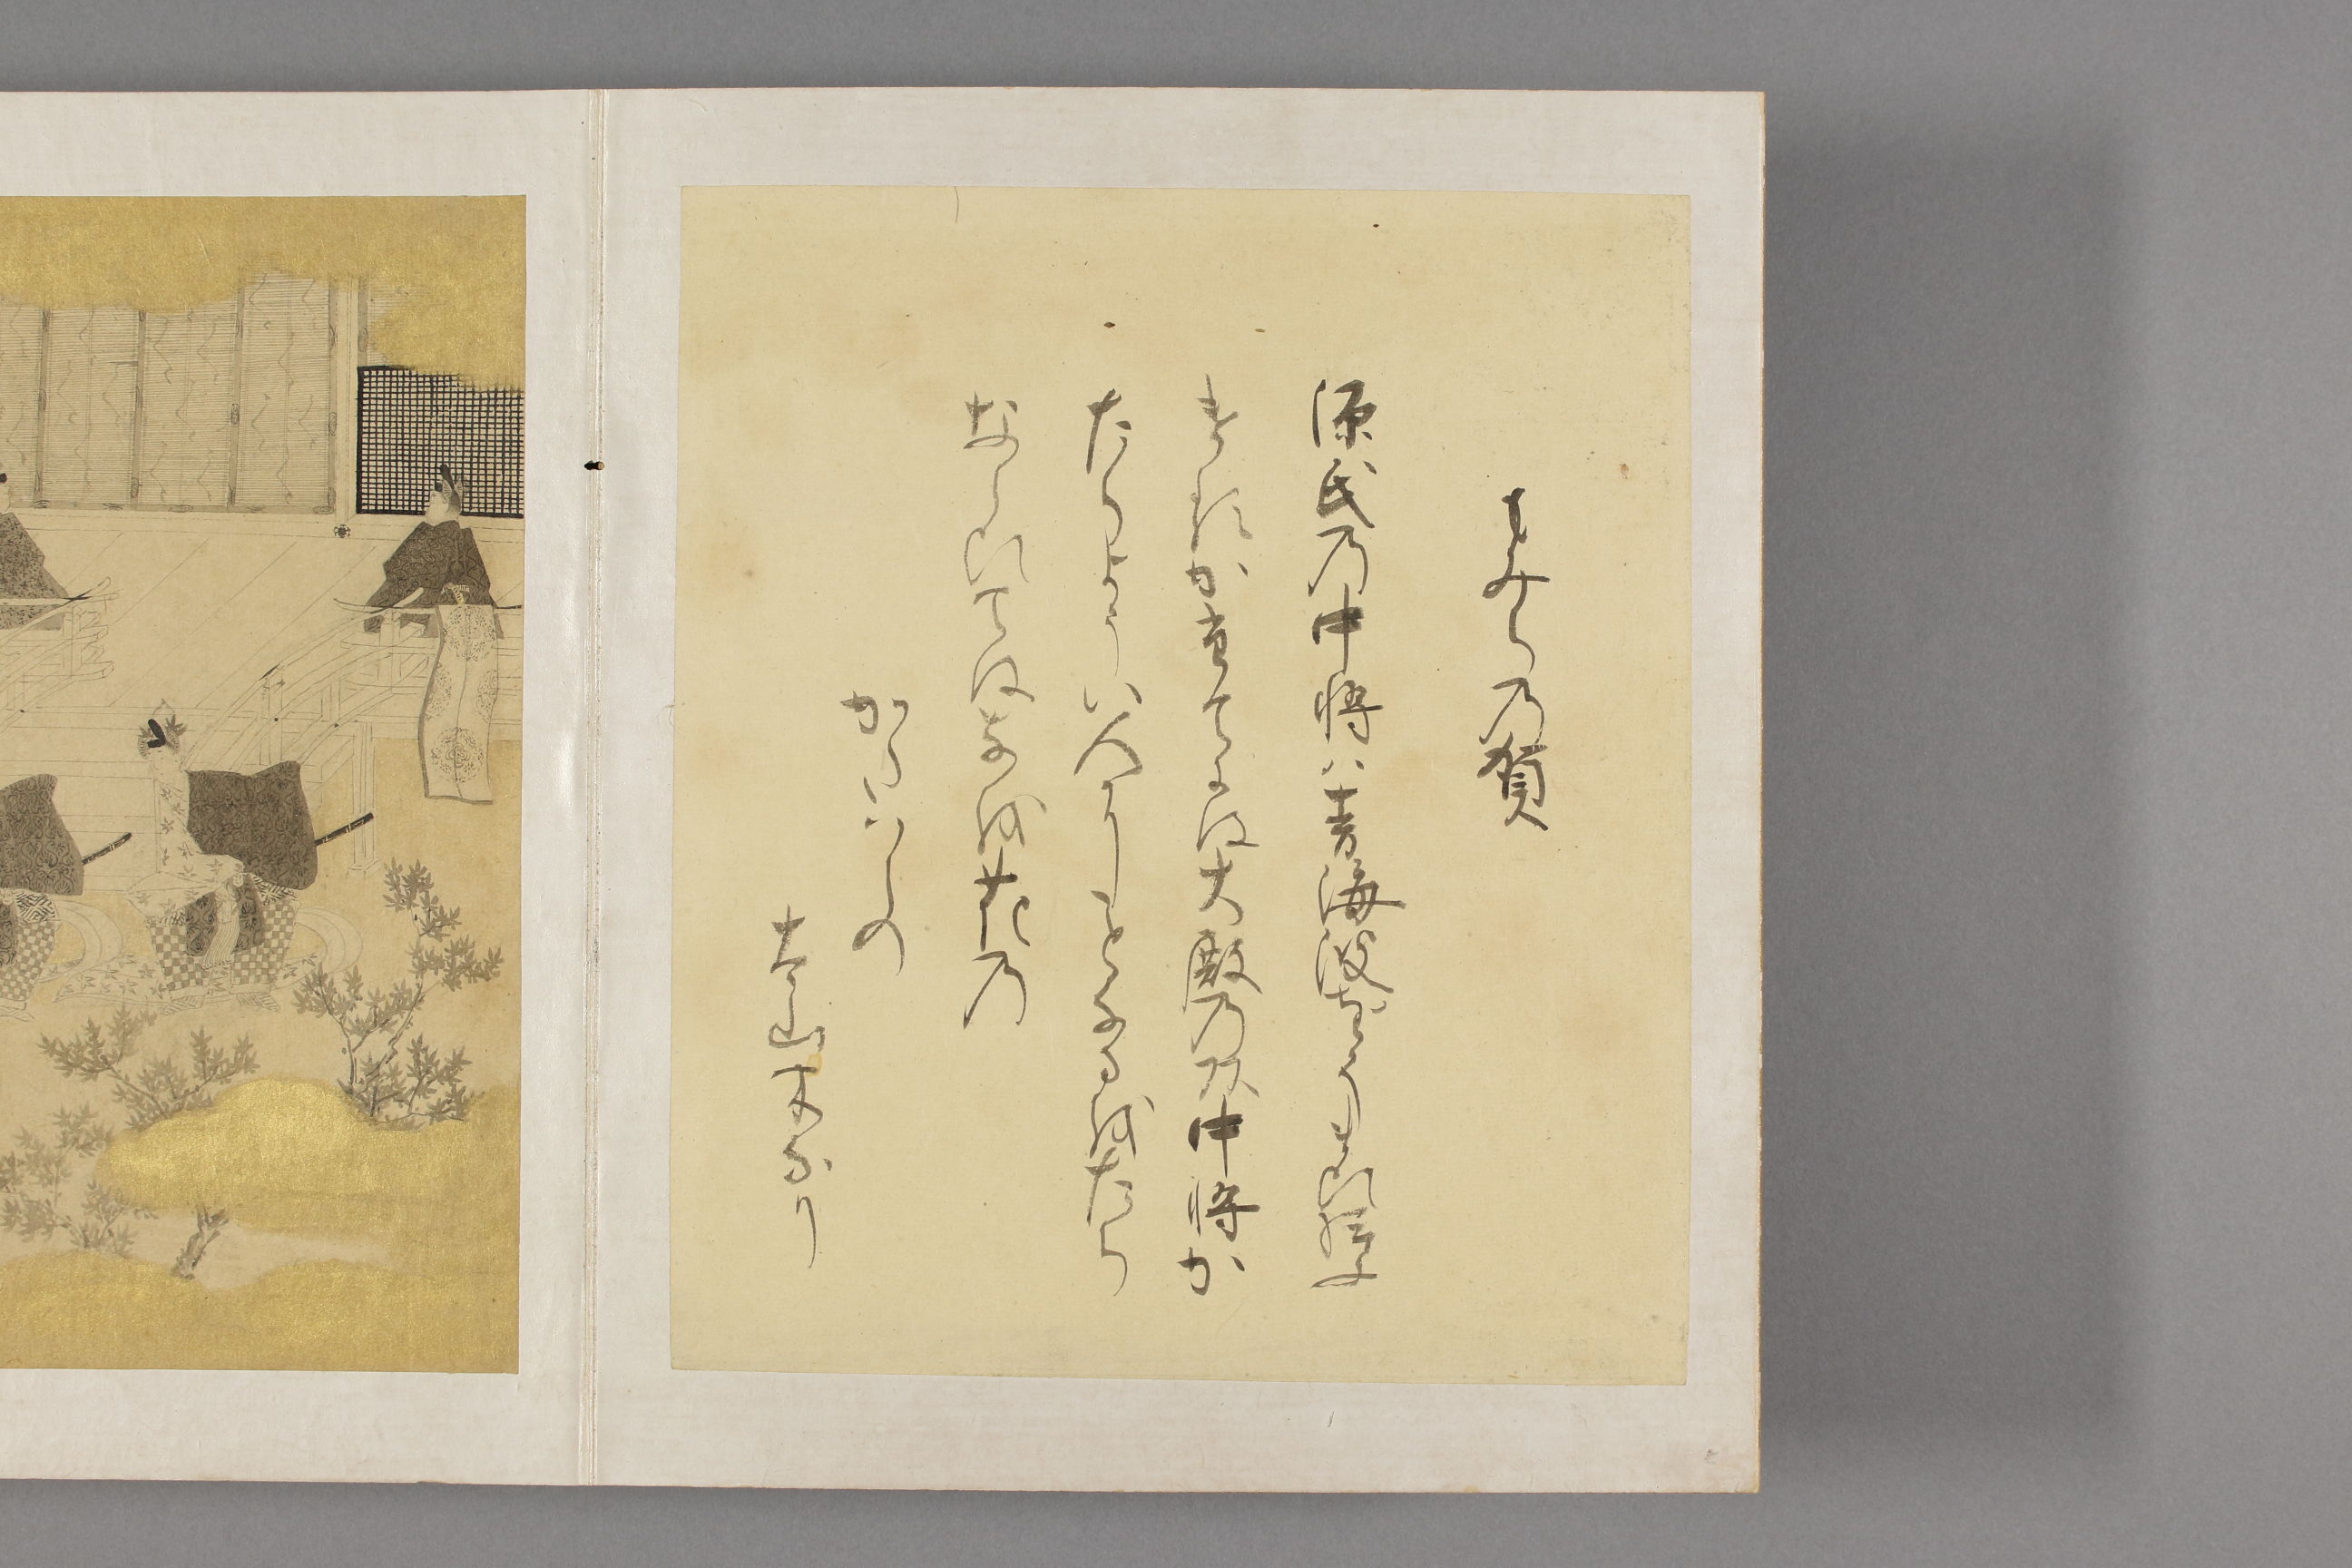 もみち乃賀
源氏乃中将ハ青海波をそまひ給
けるかたてには大殿乃頭中将か
たちようい人にことなるをたち
ならひてはなを花乃
かたハらの